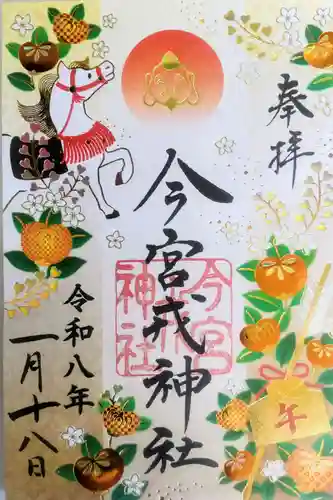 奉拝
今宮戎神社
今宮戎神社
令和八年
一月十八日
午